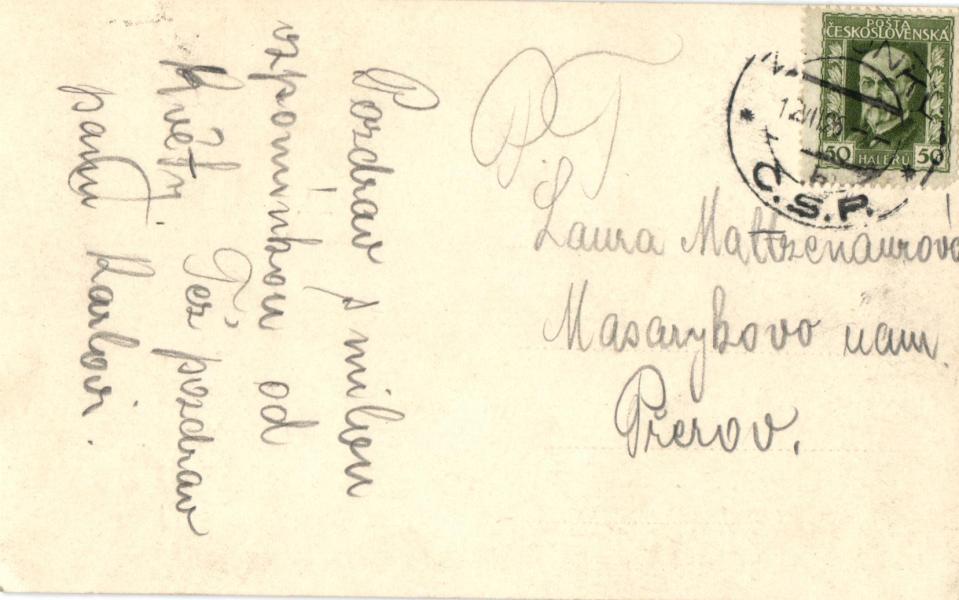 Pozdrav s milou
vzpomínkou od
Květy Též pozdrav
panu Karlovi.
P. T.
Laura Mattzenaurová
Masarykovo nam.
Přerov.
POŠTA
ČESKOSLOVENSKÁ
50 HALÉŘŮ 50
Č.S.P.